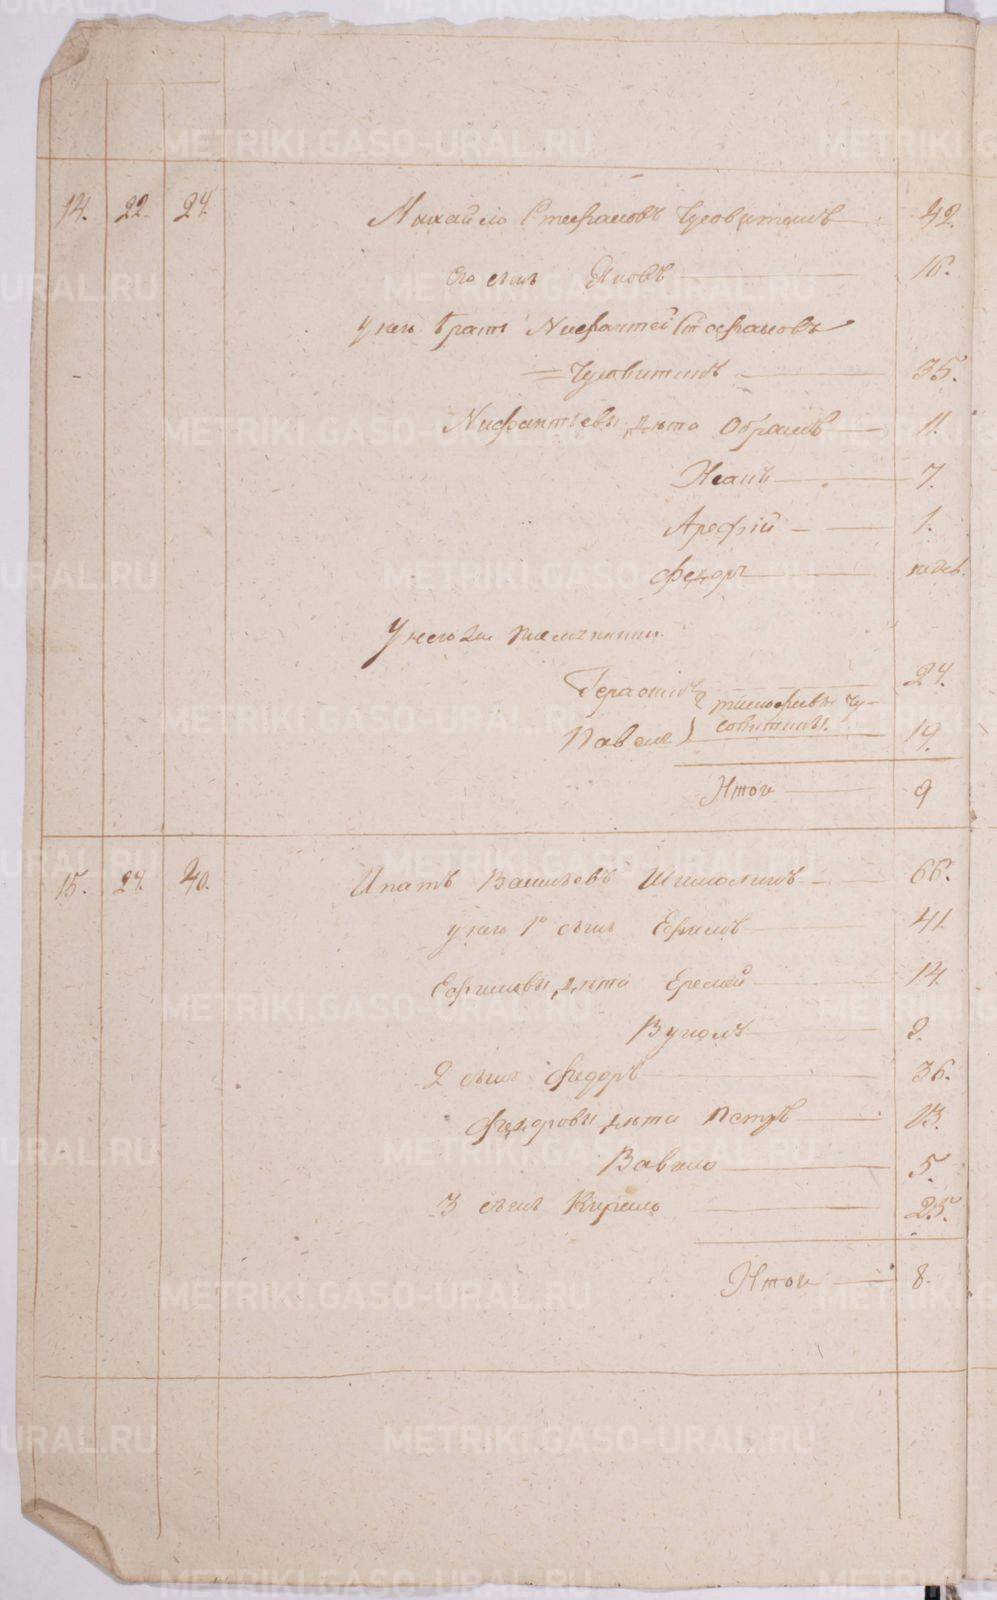 14. 22. 24. Михайло Стефановъ Чусовитинъ 42.
Его сынъ Яковъ 16.
У него братъ Нифантей Стефановъ
Чусовитинъ 35.
Нифантьевы дѣти Обрамъ 11.
Иванъ 7.
Арефій 1.
Федоръ недѣл.
У него два племянники
Герасимъ 24.
Тимофеевы Чу-
совитины.
Павелъ 19.
Итого 9
15. 24. 40. Ипатъ Васильевъ 66.
у него 1й сынъ Ефимъ 41.
Ефимовы дѣти Еремей 14.
Вуколъ 2.
2 сынъ Федоръ 36.
Федоровы дѣти Петръ 13.
Вавило 5.
3 сынъ Кирило 25.
Итого 8.
METRIKI.GASO-URAL.RU